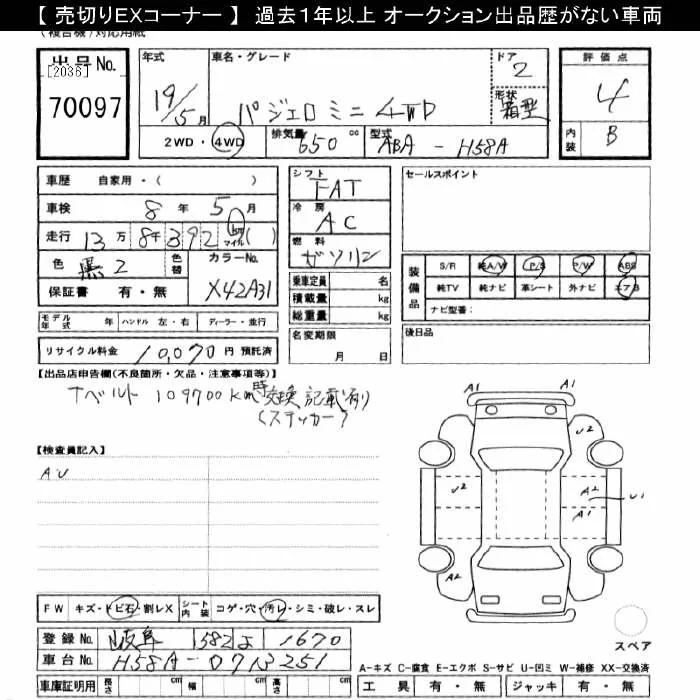 【 売切りEXコーナー 】 過去１年以上 オークション出品歴がない車両
(複合機)対応用紙
出品No.
[2036]
70097
年式
19/5月
車名・グレード
パジェロミニ 4WD
ドア
2
形状
箱型
評価点
4
内装
B
2WD・4WD
排気量
650 cc
型式
ABA - H58A
車歴 自家用・( )
車検 8 年 5 月
走行 13万 8千 392 km マイル ( )
色 黒2
色替
カラーNo.
X42A31
保証書 有・無
シフト
FAT
冷房
AC
燃料
ガソリン
乗車定員 名
積載量 kg
総重量 kg
セールスポイント
装備品
S/R 純A/W P/S P/W ABS
純TV 純ナビ 革シート 外ナビ エアB
ナビ型番：
モデル年式 年 ハンドル 左・右 ディーラー・並行
リサイクル料金 10,070 円 預託済
名変期限
月 日
後日品
【出品店申告欄(不良箇所・欠品・注意事項等)】
ナベルト 109700km時交換記載有り
(ステッカー)
【検査員記入】
A・U
A1
A1
U2
U2
A2
U1
A1
A2
スペア
FW キズ・トビ石・割レX
シート内装 コゲ・穴・汚レ・シミ・破レ・スレ
登録No. 岐阜 582 よ 1670
車台No. H58A-0713251
A-キズ C-腐食 E-エクボ S-サビ U-凹ミ W-補修 XX-交換済
車庫証明用 長さ cm 幅 cm 高さ cm
工具 有・無 ジャッキ 有・無